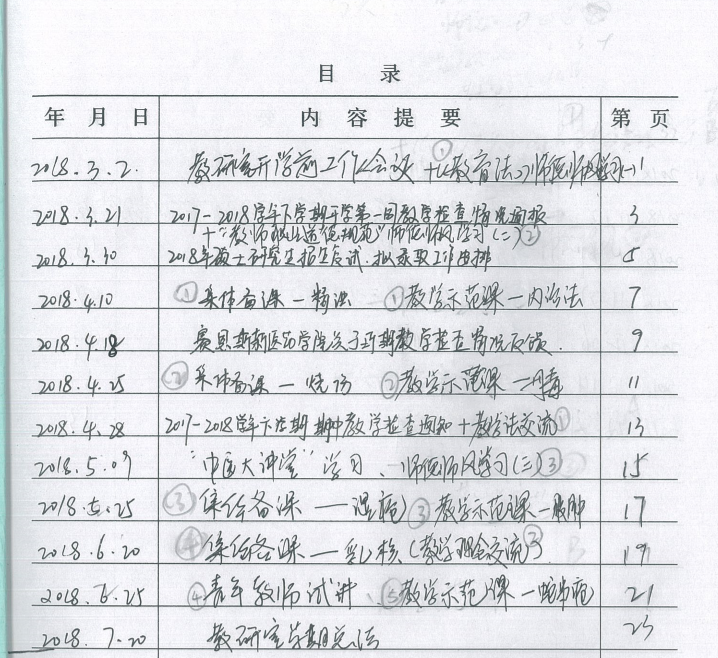 目 录
年 月 日 内 容 提 要 第 页
2018.3.2. 教研室开学前工作会议 +《教育法》师德师风学习(一) ① 1
2018.3.21 2017-2018学年下学期开学第一周教学检查情况通报 3
+“教师职业道德规范”师德师风学习(二)②
2018.3.30 2018年硕士研究生招生复试、拟录取工作安排 5
2018.4.10 ①集体备课— ①教学示范课—内治法 7
2018.4.18 新医药学院关于近期教学检查情况反馈. 9
2018.4.25 ②集体备课—烧伤 ②教学示范课—丹毒 11
2018.4.28 2017-2018学年下学期期中教学检查通知+教学法交流① 13
2018.5.09 “中医大讲堂”学习、师德师风学习(三)③ 15
2018.5.25 ③集体备课—湿疮 ③教学示范课—脱肿 17
2018.6.20 ④集体备课—乳核(教学理念交流)② 19
2018.6.25 ④青年教师试讲、⑤教学示范课—蛇串疮 21
2018.7.20 教研室学期总结 23